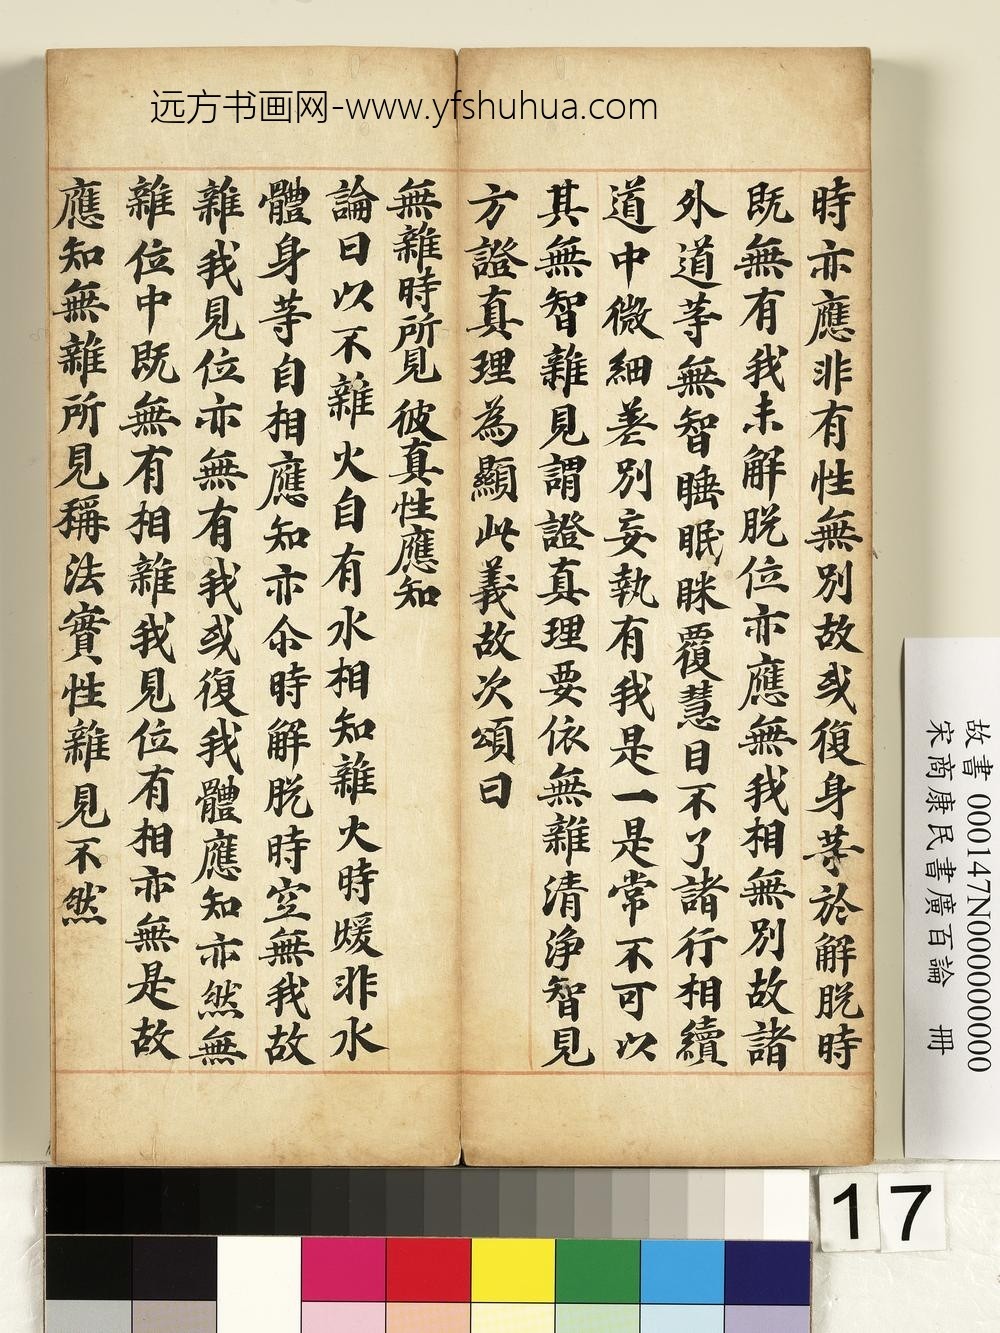 远方书画网-www.yfshuhua.com
時亦應非有性無別故或復身等於解脫時
既無有我未解脫位亦應無我相無別故諸
外道等無智睡眠眯覆慧目不了諸行相續
道中微細差別妄執有我是一是常不可以
其無智雜見謂證真理要依無雜清淨智見
方證真理為顯此義故次頌曰
無雜時所見 彼真性應知
論曰以不雜火自有水相知雜火時煖非水
體身等自相應知亦尒時解脫時空無我故
雜我見位亦無有我或復我體應知亦然無
雜位中既無有相雜我見位有相亦無是故
應知無雜所見稱法實性雜見不然
故書 000147N000000000
宋商康民書廣百論 冊
17